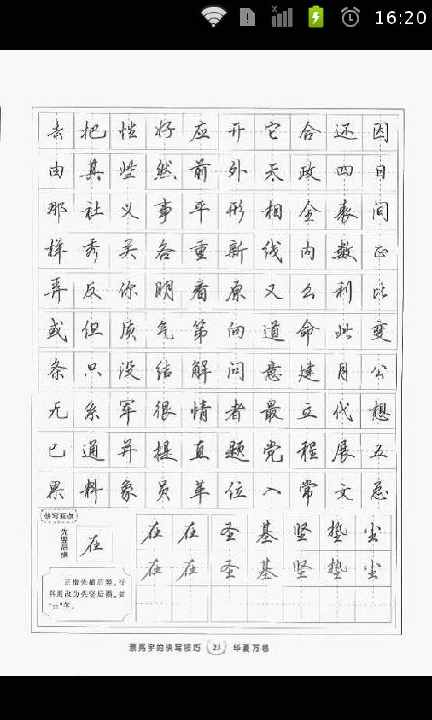 16:20
去 把 性 好 应 开 它 合 还 因
由 其 些 然 前 外 天 政 四 日
那 社 义 事 平 形 相 全 表 间
样 秀 关 各 重 新 线 内 数 正
弄 反 你 明 看 原 又 么 利 比
或 但 质 气 第 向 道 命 此 变
条 只 没 结 解 问 意 建 月 公
无 系 军 很 情 者 最 立 代 想
已 通 并 提 直 题 党 程 展 五
果 料 象 员 革 位 入 常 文 总
快写要点
先竖后横
在
在 在 圣 基 坚 垫 尘
在 在 圣 基 坚 垫 尘
的快写技巧 21 华夏万卷